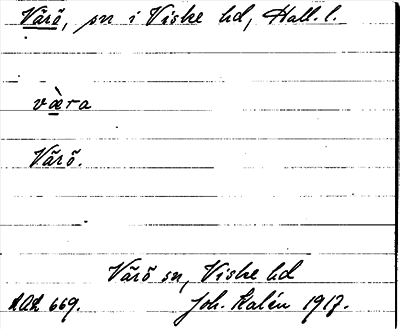 Värö, sn i Viske hd, Hall. l.
væ̀ra
Värö.
Värö sn, Viske hd
669. Joh. Kalén 1917.